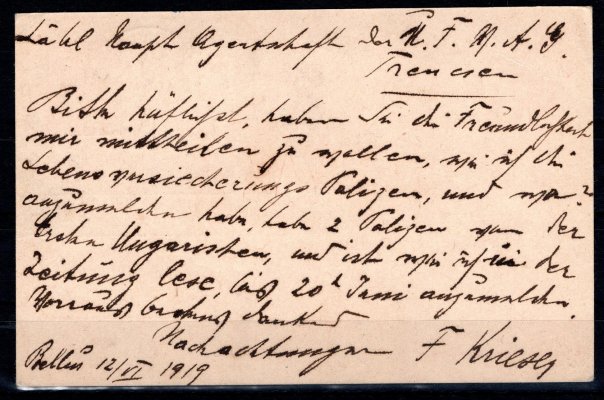 Löbl. Haupt Agentschaft der K. F. V. A. G.
Trencsen
Bitte höflichst, haben Sie die Freundlichkeit
mir mittheilen zu wollen, wie ich die
Lebensversicherungs Polizen, und wo
anzumelden habe, habe 2 Polizen von der
Ersten Ungarischen, und ist wie ich in der
Zeitung lese, bis 20t Juni anzumelden.
Vorraus bestens dankend
Hochachtungsv
F Krieser
Bellus 12/VI 1919